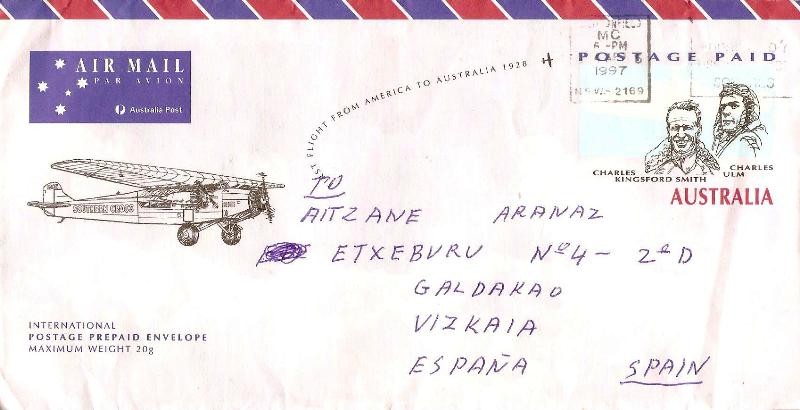 AIR MAIL
PAR AVION
Australia Post
FLIGHT FROM AMERICA TO AUSTRALIA 1928
MC
6 -PM
1997
N.S.W.-2169
POSTAGE PAID
CHARLES KINGSFORD SMITH
CHARLES ULM
AUSTRALIA
SOUTHERN CROSS
TO
AITZANE ARANAZ
ETXEBURU Nº4 - 2ªD
GALDAKAO
VIZKAIA
ESPAÑA SPAIN
INTERNATIONAL
POSTAGE PREPAID ENVELOPE
MAXIMUM WEIGHT 20g